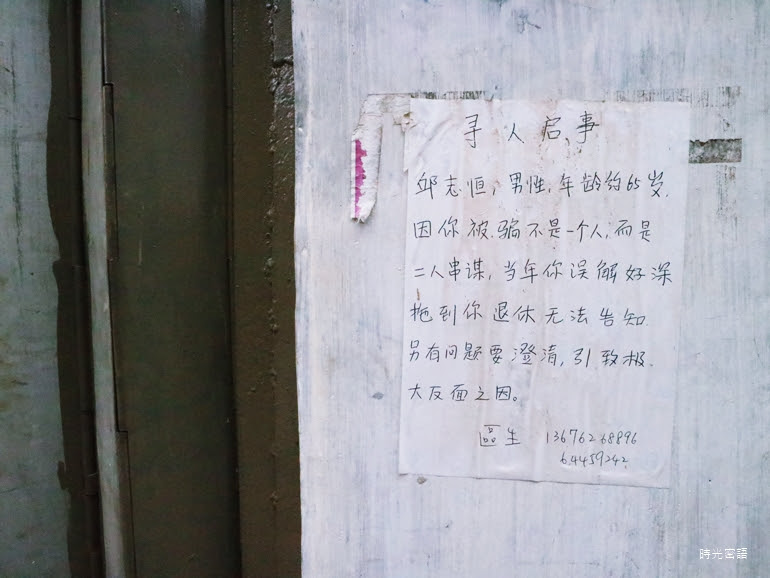 寻人启事
邱志恒, 男性, 年龄约65岁.
因你被骗不是一个人, 而是
二人串谋, 当年你误解好深
拖到你退休无法告知.
另有问题要澄清, 引致极.
大反面之因。
區生 13676268896
64459242.
時光窖語